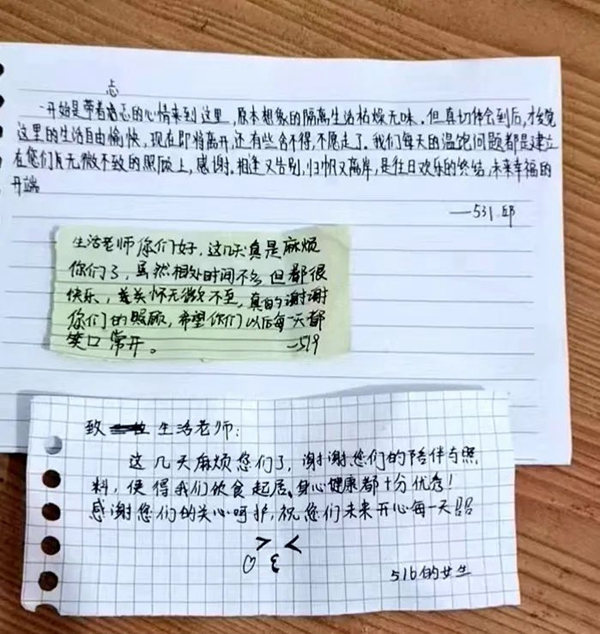 忐
一开始是带着忐忑的心情来到这里,原本想象的隔离生活枯燥无味.但真切体会到后,才发觉
这里的生活自由愉快,现在即将离开,还有些舍不得,不愿走了.我们每天的温饱问题都是建立
在您们无微不致的照顾上,感谢.相逢又告别,归帆又离岸,是往日欢乐的终结,未来幸福的
开端
——531.邱
生活老师你们好,这几天真是麻烦
你们了,虽然相处时间不多但都很
快乐,关怀无微不至,真的谢谢
你们的照顾,希望你们以后每一天都
笑口常开。 —519
致 生活老师:
这几天麻烦您们了,谢谢您们的陪伴与照
料,使得我们饮食起居、身心健康都十分优态!
感谢您们的关心呵护,祝您们未来开心每一天
516的女生